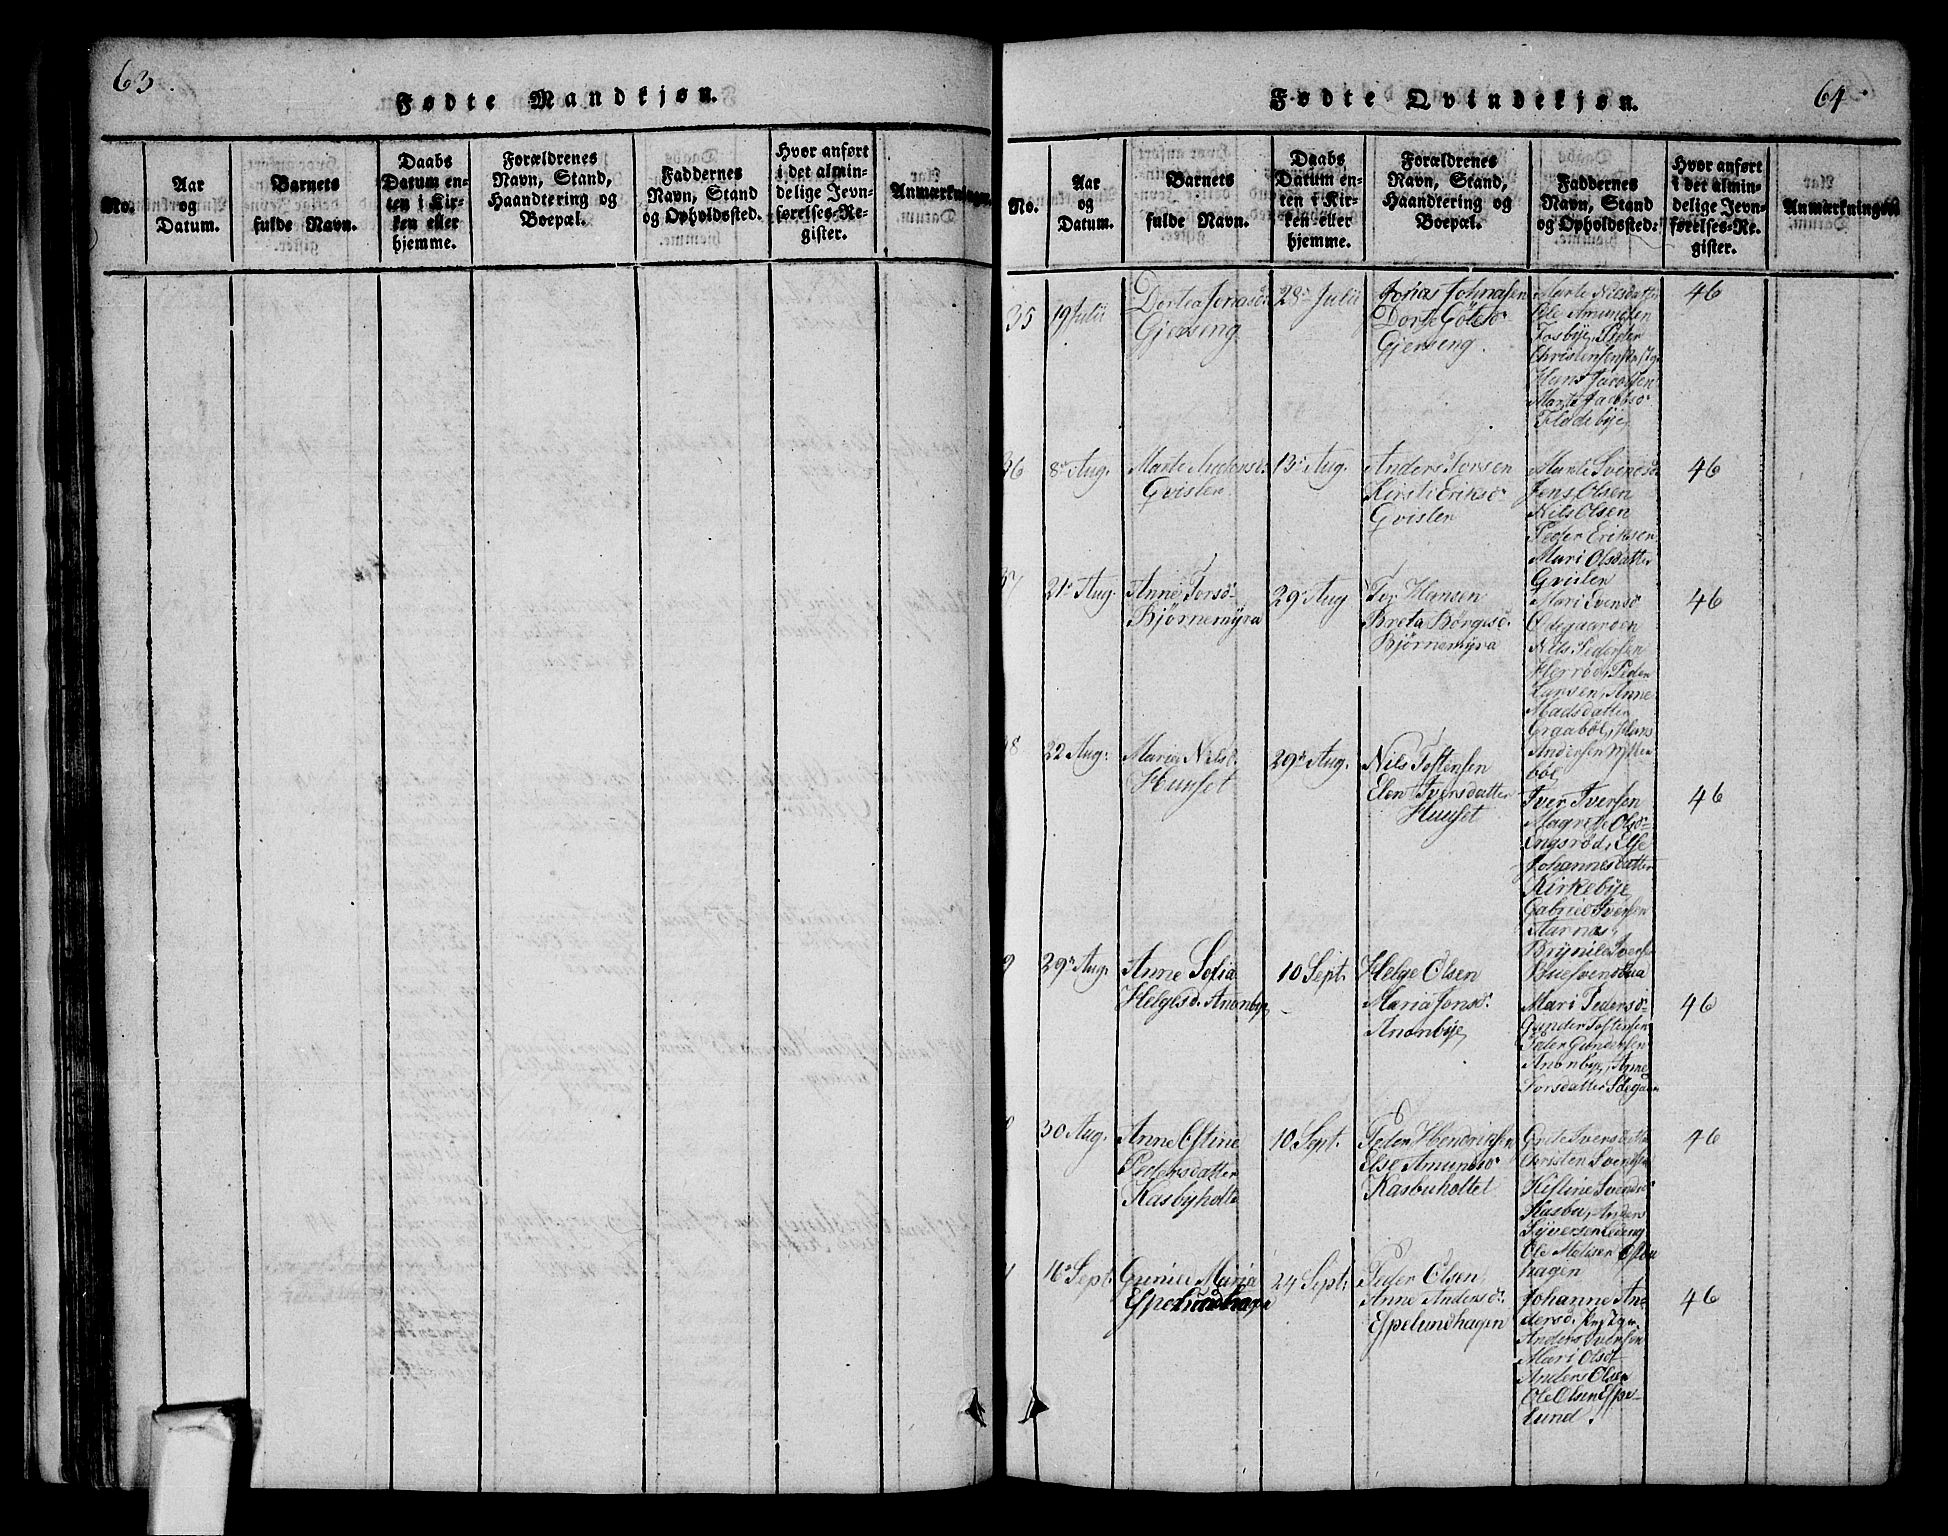 63.
Fødte Mandkjøn.
No.
Aar
og
Datum.
Barnets
fulde Navn.
Daabs
Datum en-
ten i Kir-
ken eller
hjemme.
Forældrenes
Navn, Stand,
Haandtering og
Boepæl.
Faddernes
Navn, Stand
og Opholdssted.
Hvor anført
i det almin-
delige Jevn-
førelses-Re-
gister.
Anmærkninger.
64.
Fødte Qvindekjøn.
No.
Aar
og
Datum.
Barnets
fulde Navn.
Daabs
Datum en-
ten i Kir-
ken eller
hjemme.
Forældrenes
Navn, Stand,
Haandtering og
Boepæl.
Faddernes
Navn, Stand
og Opholdssted:
Hvor anført
i det almin-
delige Jevn-
førelses-Re-
gister.
Anmærkninger
35
19 Julii
Dortea Jonasd:
Gjerseng
28 Julii
Jonas Johnasen
Dorte
Gjerseng.
Marte Nilsdatter
Ole Amundsen
Fosbye, Peder
Christensen
Hans Jacobsen
Marte Jacobsd
Flodebye,
46
36
8 Aug.
Marte Andersd:
Gvislen
13 Aug.
Anders Torsen
Kirsti Eriksd
Gvislen
Marte Svensd
Jens Olsen
Nils Olsen
Peder Eriksen
Mari Olsdatter
Gvislen
46
37
21 Aug.
Anne Torsd
Bjørnemyra
29 Aug
Tor Hansen
Breta Børgesd.
Bjørnemyra
Mari Svensd
Ødegaarden
Nils Pedersen
Herrød, Peder
Larsen, Anne
Madsdatter
Hans
Andersen
46
8
22 Aug:
Maria Nilsd.
Huuset
29 Aug.
Nils Tostensen
Elen Iversdatter
Huuset
Iver Iversen
Magrete Olsd
Engsrød, Else
Johannesdatter
Kirkebye
Gabriel Iversen
Aarnæs,
Brynild

46
9
29 Aug.
Anne Sofia
Helgesd. Anonbye,
10 Sept.
Helge Olsen
Maria Jonsd.
Anonbye,
Mari Pedersd
Gunder Tostensen
Peder Gundersen
Anonbye, Anne
Torsdatter
46
30 Aug.
Anne Estine
Pedersdatter
Kasbyholte
10 Sept.
Peder Hendriksen
Else Amundsd
Kasbuholtet
Grete Iversdatter
Christen Svendsen
Kistine Svendsd
Kasbu, Anders
Syversen
Ole
hagen
46
16 Sept.
Gunild Maria
Espelundhagen
24 Sept.
Peder Olsen
Anne Andersd
Espelundhagen
Johanne An
dersd.
Anders Iversen
Mari Olsd
Anders Olsen
Ole Olsen Espe-
lund.
46